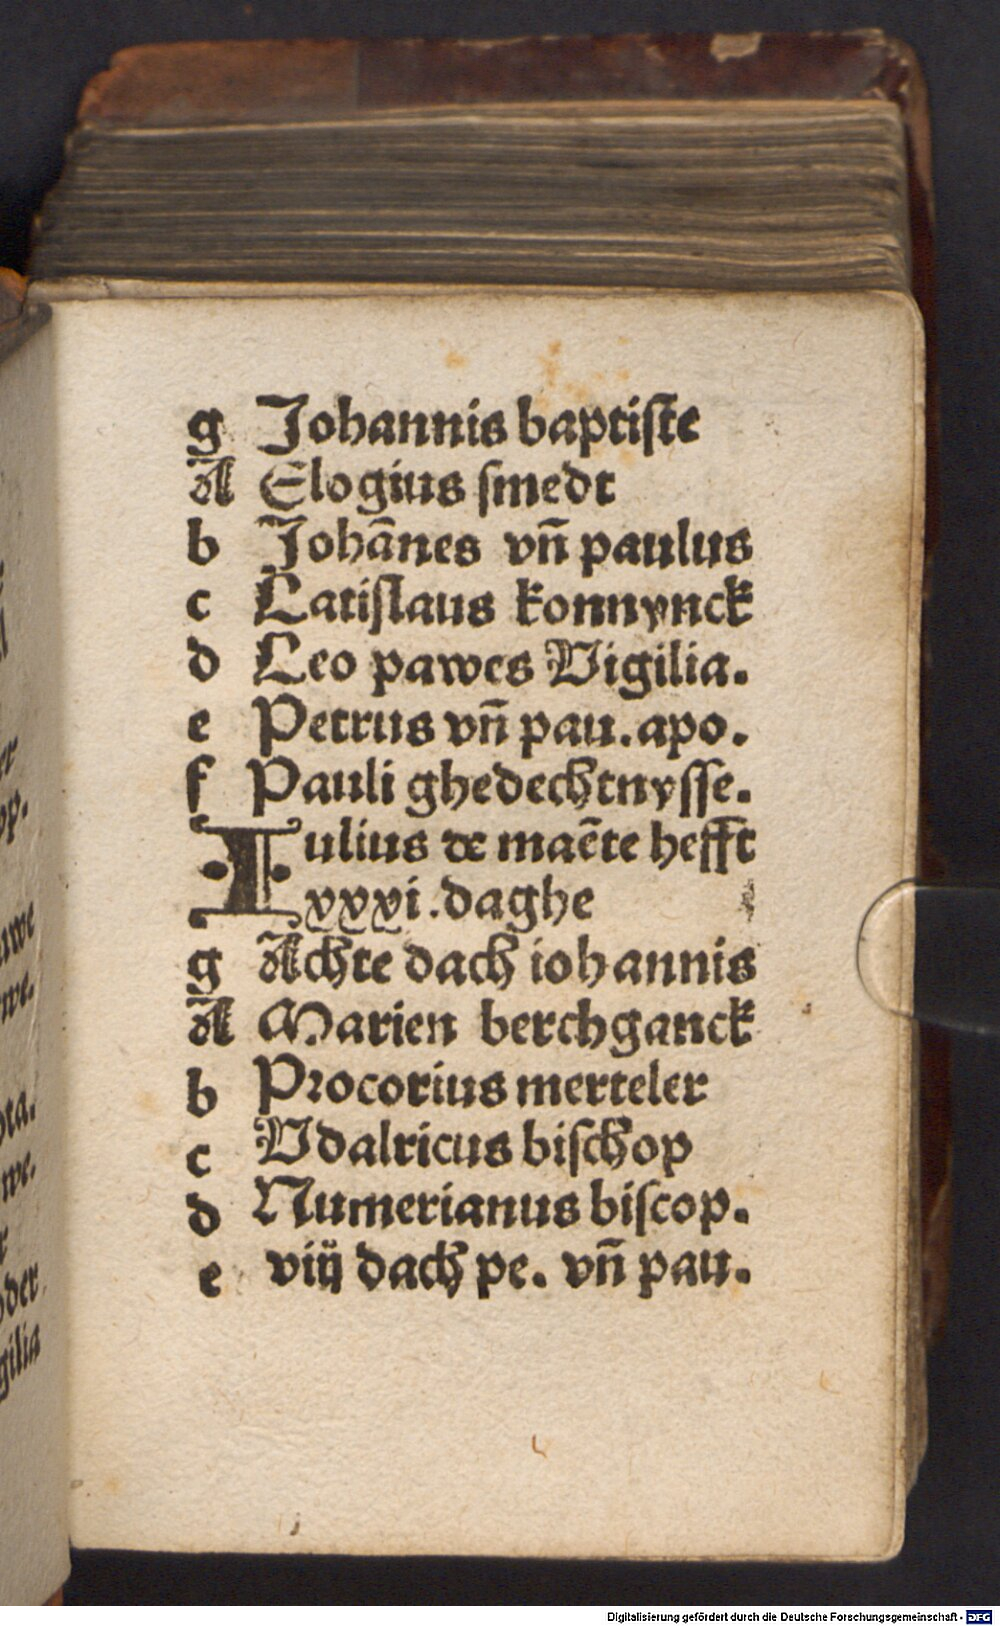 g Johannis baptiste
A Elogius smedt
b Johānes vn̄ paulus
c Latislaus konnynck
d Leo pawes Vigilia.
e Petrus vn̄ pau. apo.
f Pauli ghedechtnysse.
Iulius de maēte hefft
xxxi. daghe
g Achte dach iohannis
A Marien berchganck
b Procorius merteler
c Vdalricus bischop
d Numerianus biscop.
e viij dach pe. vn̄ pau.
Digitalisierung gefördert durch die Deutsche Forschungsgemeinschaft - DFG